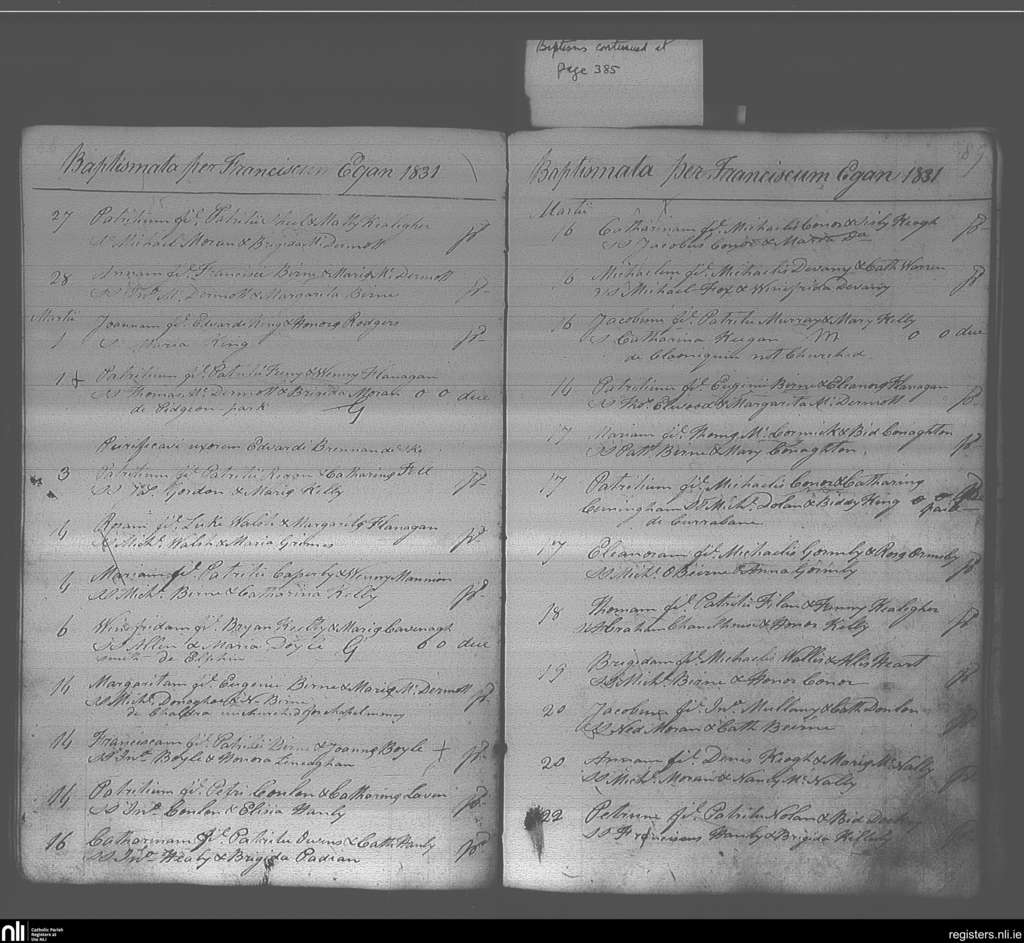 Baptisms continued at
page 385
Baptismata per Franciscum Egan 1831
27 Patritium fil. Patritii & Matty Kealigher
SS Michael Moran & Brigida McDermott pd
28 Annam fil. Francisci Birne & Maria McDermott
SS Jno. McDermott & Margarita Birne pd
Martii
1 Joannam fil. Edwardi King & Honora Rodgers
S Maria King pd
1 + Patritium fil. Patritii Feny & Winny Flanagan
SS Thomas McDermott & Brigida Moran 0 0 due
de Pidgeon park G
Purificavi uxorem Edwardi Brennan de
3 Patritium fil. Patritii Regan & Catharina
SS Gordon & Maria Kelly pd
4 Rosam fil. Luke Walsh & Margarita Flanagan
SS Michl. Walsh & Maria Grimes pd
4 Mariam fil. Patritii Caperly & Winny Mannion
SS Michl. Birne & Catharina Kelly pd
6 Winefridam fil. Bryan & Maria Cavenagh
SS Allen & Maria Doyle G 0 0 due
de Elphin
14 Margaritam fil. Eugenii Birne & Maria McDermott
SS Michl. Donogher & Birne pd
de unchurched for chapel money
14 Franciscam fil. Patritii Birne & Joanna Boyle +
SS Jno. Boyle & Honora Lenedghan pd
14 Patritium fil. Petri Conlon & Catharina Lavin
SS Jno. Conlon & Elisia Hanly pd
16 Catharinam fil. Patritii Owens & Cath Hanly
SS Jno. Healy & Brigida Padian pd
Baptismata per Franciscum Egan 1831
Martii
16 Catharinam fil. Michaelis Conor & Sisly Keogh
SS Jacobus Conor & Maria Do pd
6 Michaelem fil. Michaelis Devany & Cath Warren
SS Michael Fox & Winefrida Devany pd
16 Jacobum fil. Patritii Murray & Mary Kelly
S Catharina Keegan M 0 0 due
de Clooniquin not Churched
14 Patritium fil. Eugenii Birne & Eleanora Flanagan
SS Thos. Elwood & Margarita McDermott pd
17 Mariam fil. Thoma McCormick & Bid Conaghton
SS Patk. Birne & Mary Conaghton pd
17 Patritium fil. Michaelis Conor & Catharina
Cuningham SS Michl. Dolan & Biddy King 0 0
de Currabane paid
17 Eleanoram fil. Michaelis Gormly & Rosa Ormsby
SS Michl. OBeirne & Anna Gormly pd
18 Thomam fil. Patritii Filan & Fanny Kealigher
& Honor Kelly pd
19 Brigidam fil. Michaelis Wallis & Alis Hart
SS Michl. Birne & Honor Conor pd
20 Jacobum fil. Jno. Mullany & Cath Donlon
SS Ned Moran & Cath Beirne pd
20 Annam fil. Denis Keogh & Maria McNally
SS Michl. Moran & Nancy McNally pd
22 Petrum fil. Patritii Nolan & Bid
SS Franciscus Hanly & Brigida
nli
Catholic Parish
Registers at
the NLI
registers.nli.ie